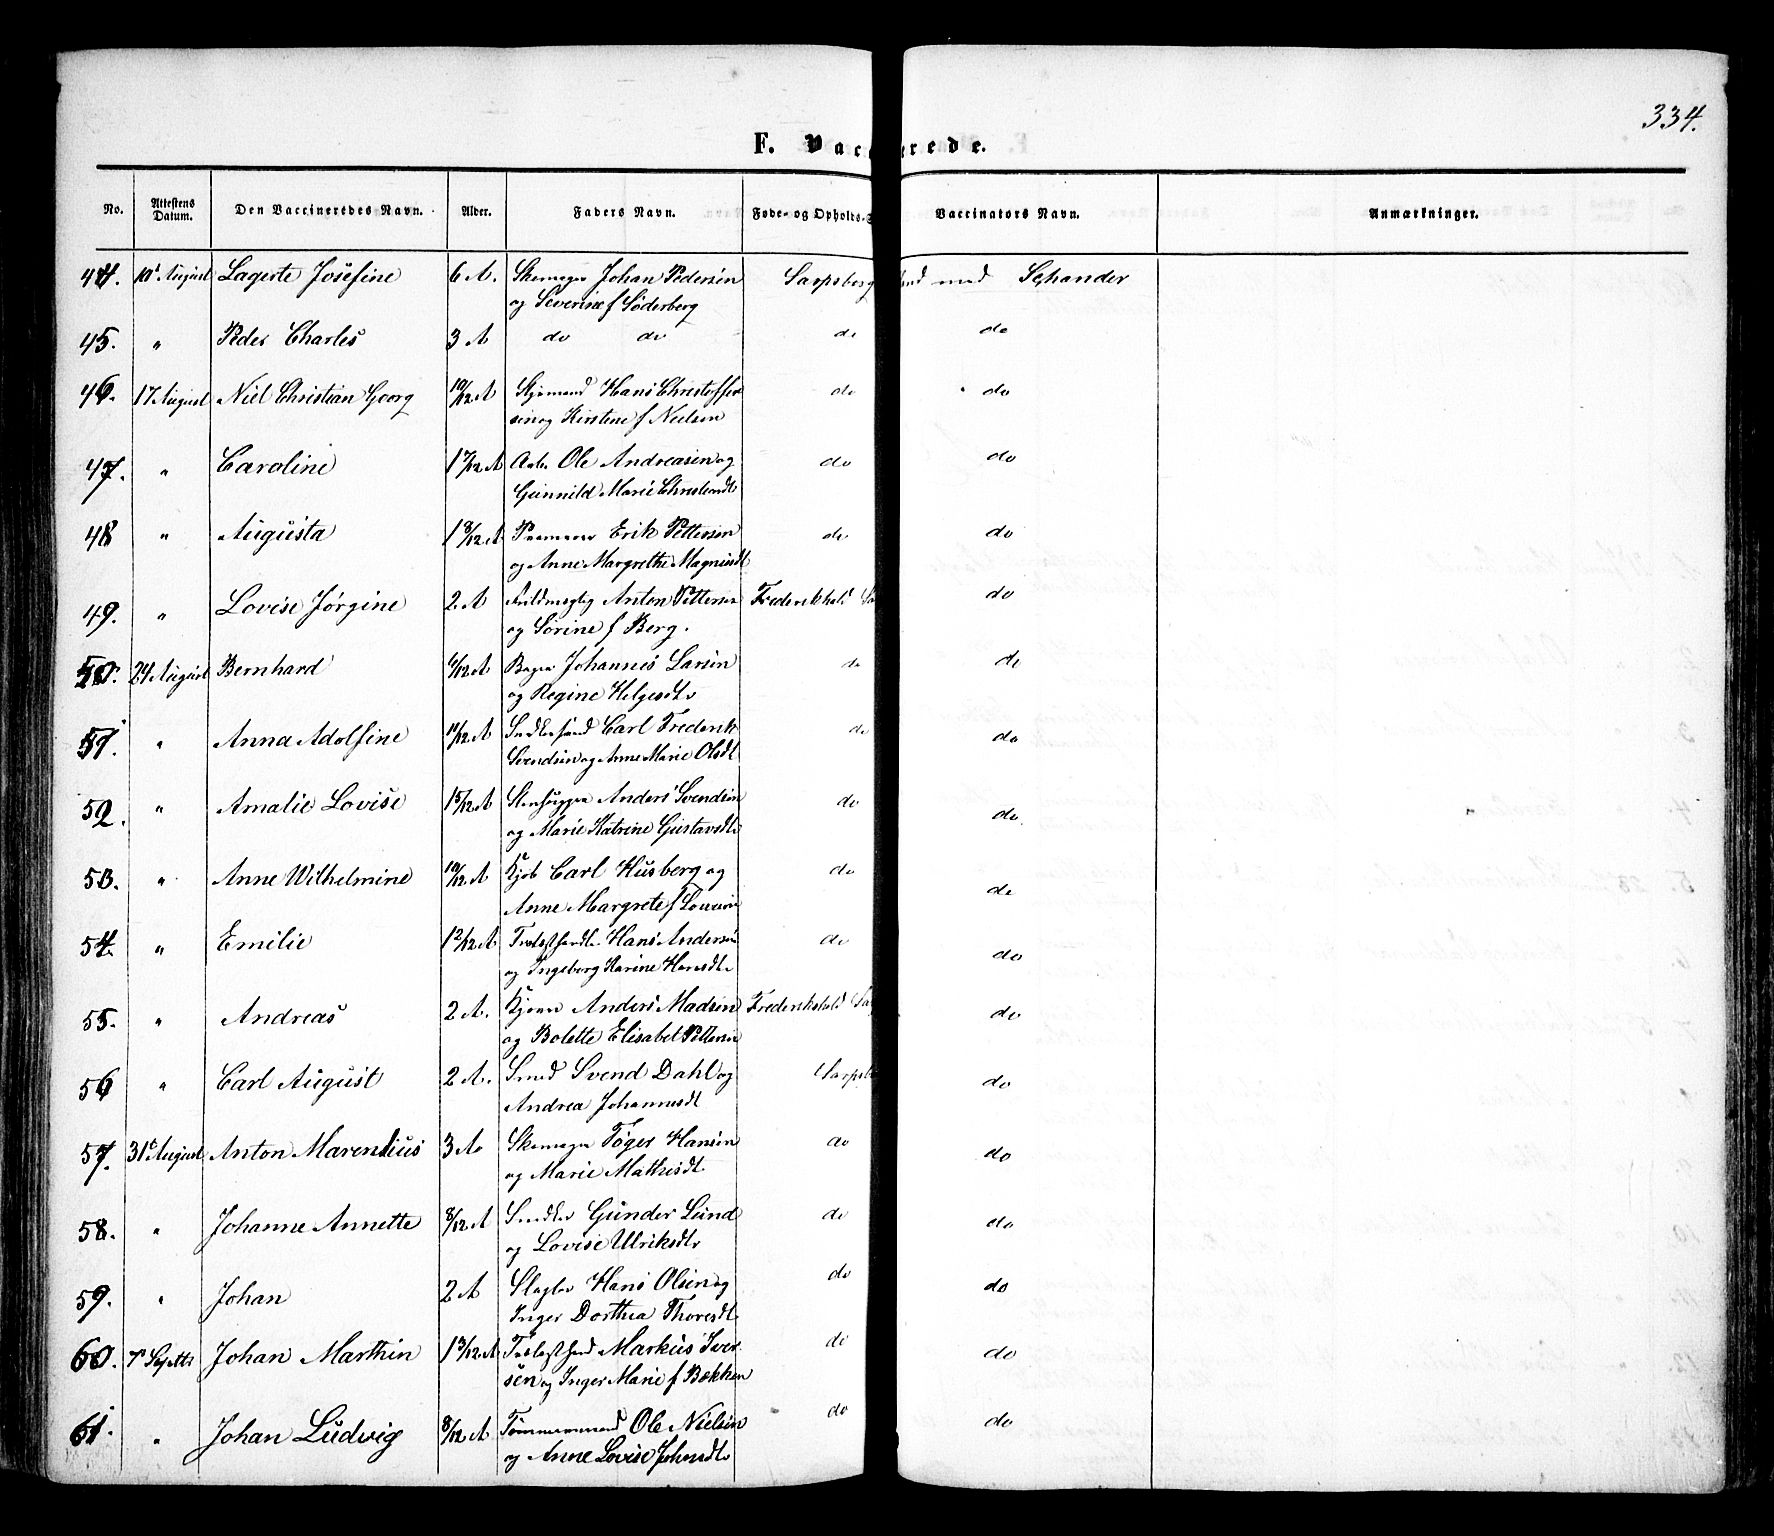 334.
F. Vaccinerede.
No. Attestens Datum. Den Vaccineredes Navn. Alder. Faders Navn. Føde- og Opholds-S Vaccinators Navn. Anmærkninger.
44. 10' August Lagerte Josefine 6 A. Skomager Johan Pedersen Sarpsborg med Schander
og Severine f Søderberg
45. " Peder Charles 3 A do do do do
46. 17 August Niel Christian Georg 10/12 A Hans Christoffer do do
sen og Kirstine f Nielsen
47. " Caroline 1 7/12 A Arb. Ole Andreasen og do do
Gunnild Marie Christiandt
48 " Augusta 1 8/12 A Erik Pettersen do do
og Anne Margrethe Magnusdt
49. " Lovise Jørgine 2 A Anton Pettersen Frederikshald do
og Sørine f Berg.
50. 24 August Bernhard 6/12 A Bager Johannes Larsen do do
og Regine Helgesdt.
51. " Anna Adolfine 11/12 A Carl Frederik do do
Svendsen og Anne Marie Olsdt
52. " Amalie Lovise 1 5/12 A Stenhugger Anders Svendsen do do.
og Marie Katrine Gustavsdt.
53. " Anne Wilhelmine 10/12 A Kjøb Carl Husberg og do do
Anne Margrete f
54. " Emilie 1 2/12 A Hans Andersen do do
og Ingeborg Karine
55. " Andreas 2 A. Anders Madsen Frederikshald do
og Bolette Elisabet Pettersen
56 " Carl August 2 A. Smed Svend Dahl og Sarpsb do
Andrea Johannesdt
57. 31' August Anton Marendius 3 A. Skomager Tøger Hansen do do
og Marie Mathisdt.
58. " Johanne Annette 8/12 A Snedker Gunder Lund do do
og Lovise Ulriksdt
59. " Johan 2 A Slagter Hans Olsen og do do
Inger Dorthea Thoresdt
60. 7' Septbr Johan Marthin 1 3/12 A Markus Iver do do
sen og Inger Marie f Bækken
61. " Johan Ludvig 8/12 A Tømmermand Ole Nielsen do do
og Anne Lovise Johnsdt.